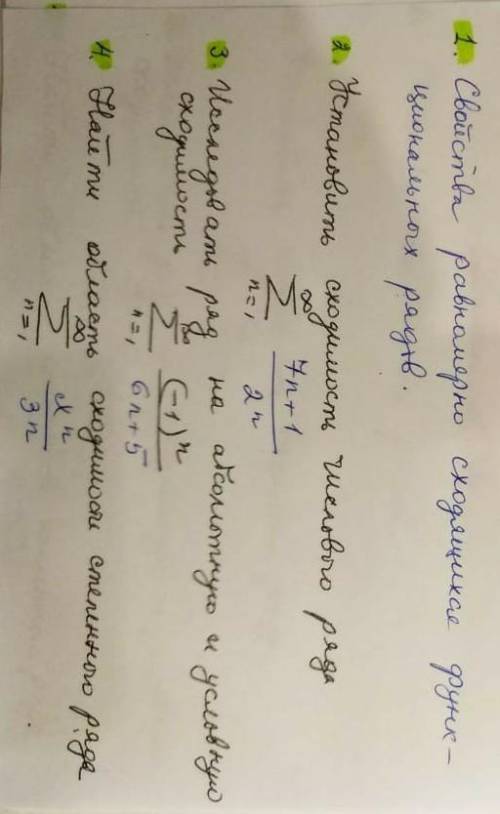 1. Свойства равномерно сходящихся функ-
циональных рядов.
2. Установить сходимость числового ряда
∞
∑ 7n+1 / 2^n
n=1
3. Исследовать ряд на абсолютную и условную
сходимость
∞
∑ (-1)^n / 6n+5
n=1
4. Найти область сходимости степенного ряда
∞
∑ x^n / 3n
n=1